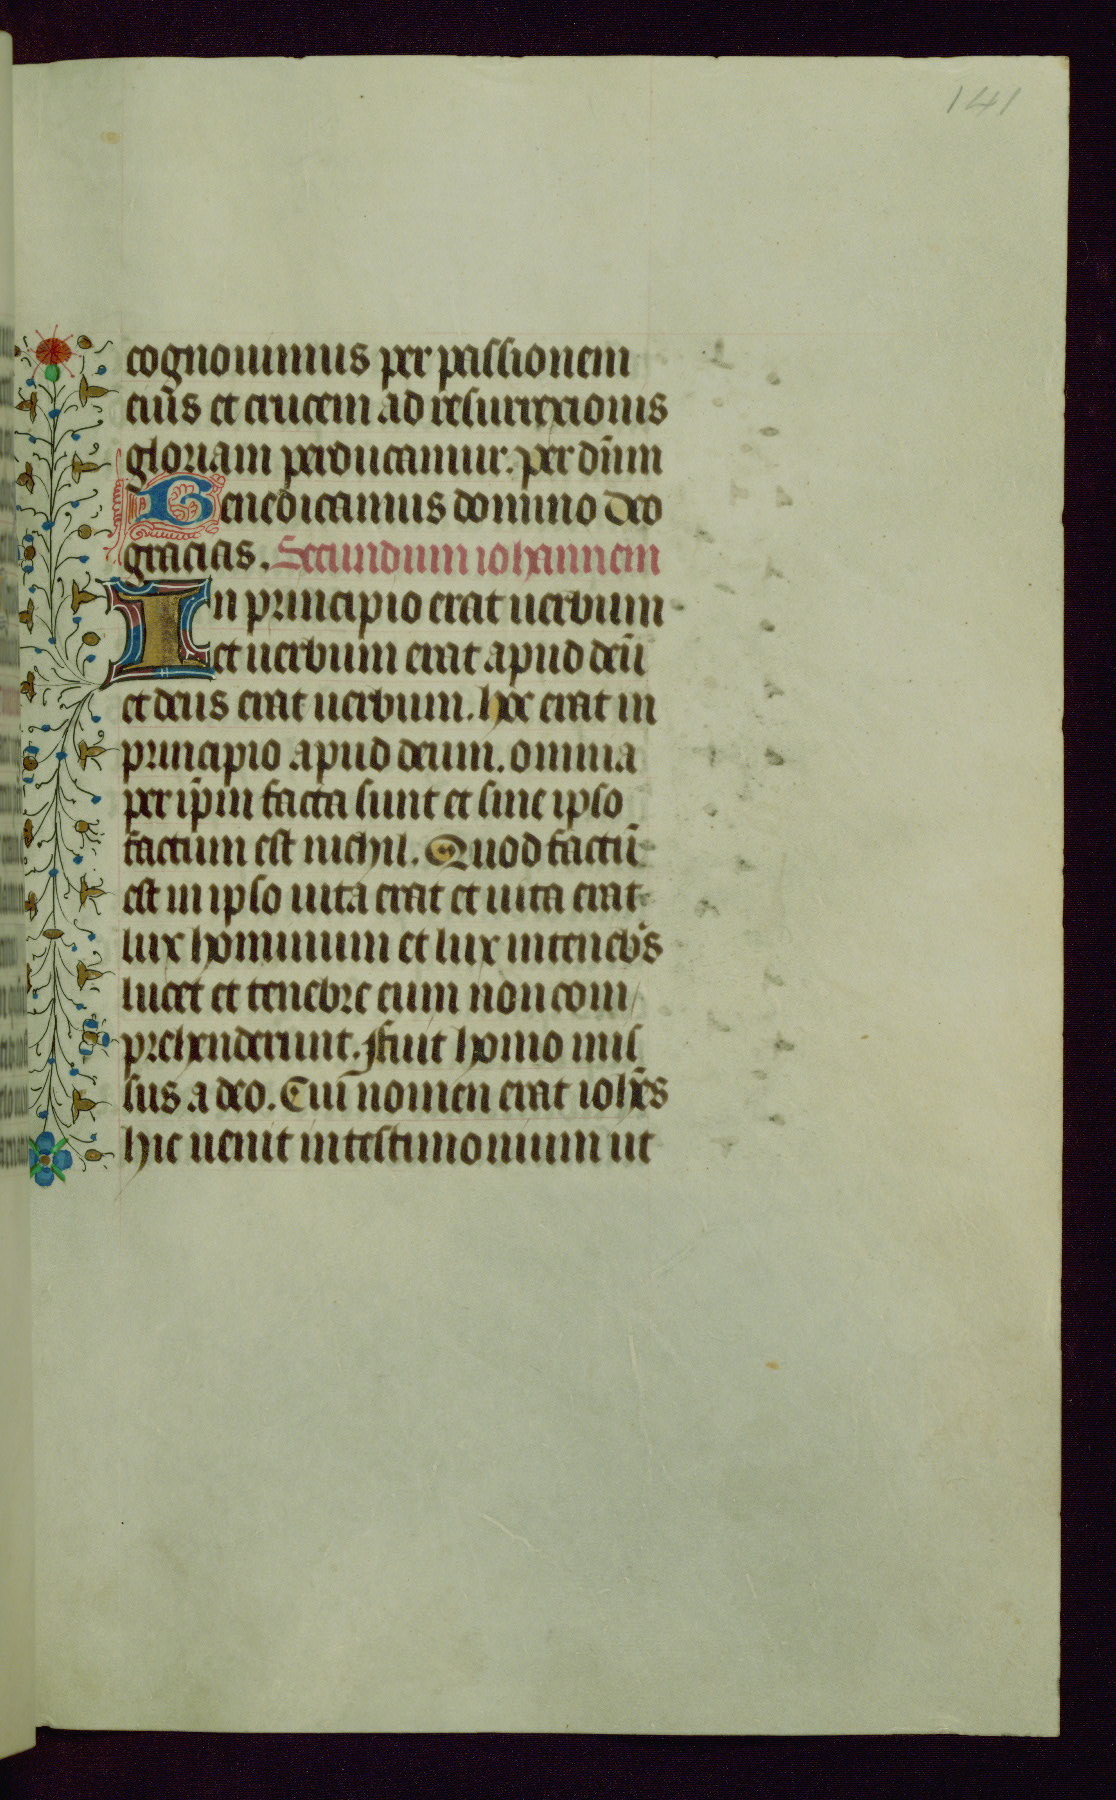 141
cognouimus per passionem
eiūs et crucem ad resurrexionis
gloriam perducamur. per dn̄m
Benedicamus domino Deo
gracias. Secundum iohannem
In principio erat uerbum
et uerbum erat apud deū
et deus erat uerbum. hoc erat in
principio apud deum. omnia
per ip̄m facta sunt et sine ipso
factum est nichil. Quod factū
est in ipso uita erat et uita erat
lux hominum et lux in teneb̄s
lucet et tenebre eum non com
prehenderunt. Fuit homo mis
sus a deo. Cui nomen erat ioh̄es
hic uenit in testimonium ut